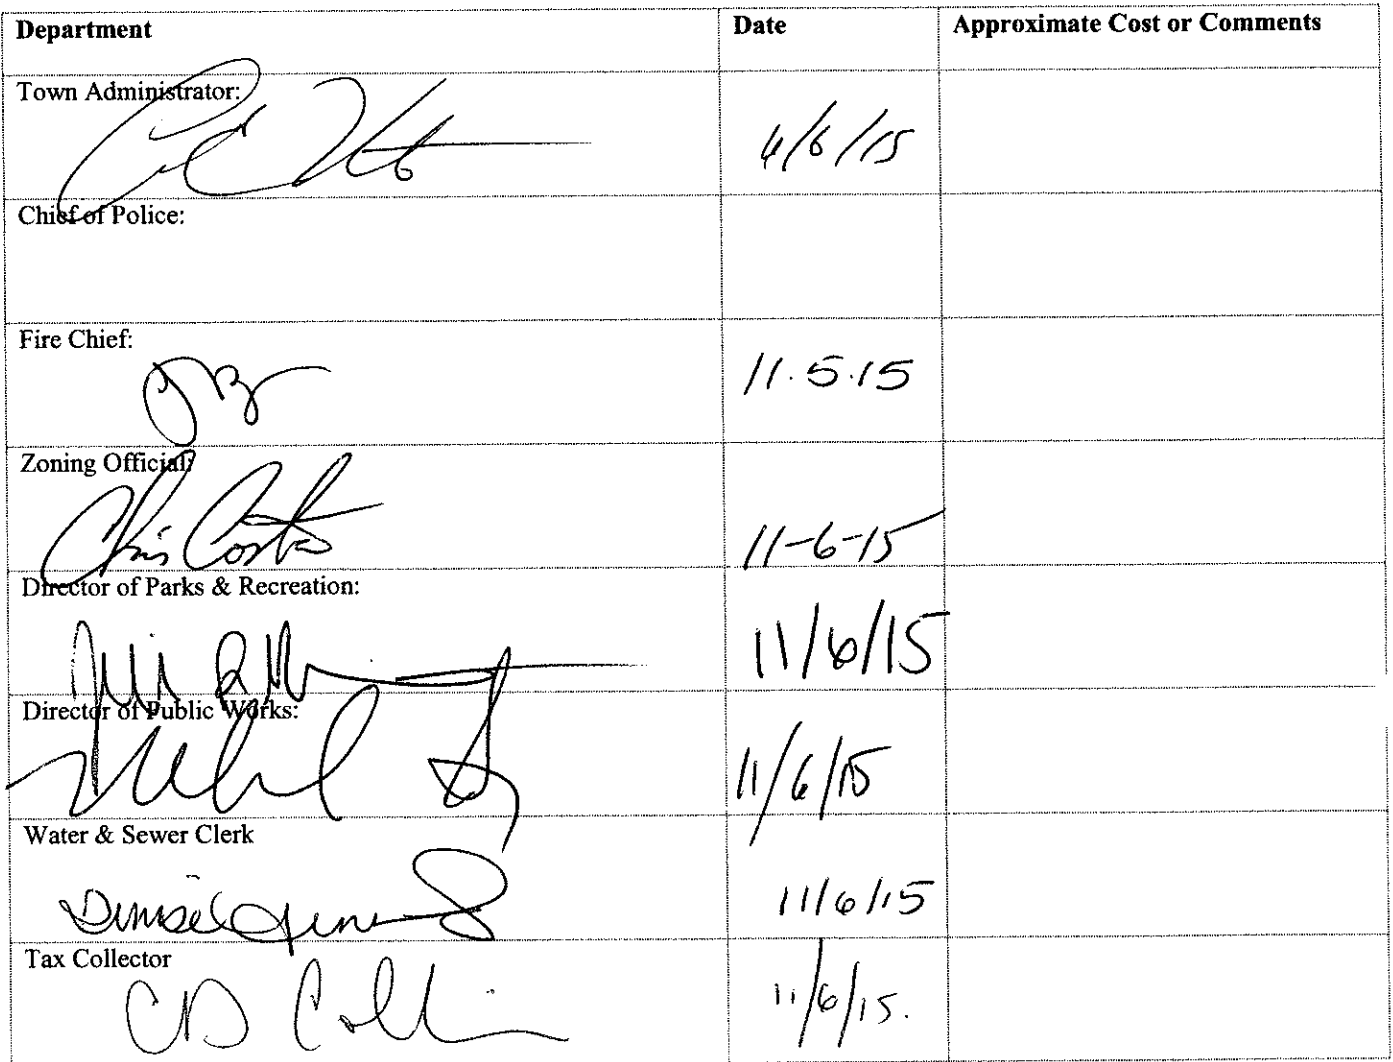 Department Date Approximate Cost or Comments
Town Administrator:
Chief of Police:
Fire Chief:
11.5.15
Zoning Official:
Chris Costa
11-6-15
Director of Parks & Recreation:
11/6/15
Director of Public Works:
11/6/15
Water & Sewer Clerk
Denise
11/6/15
Tax Collector
11/6/15.